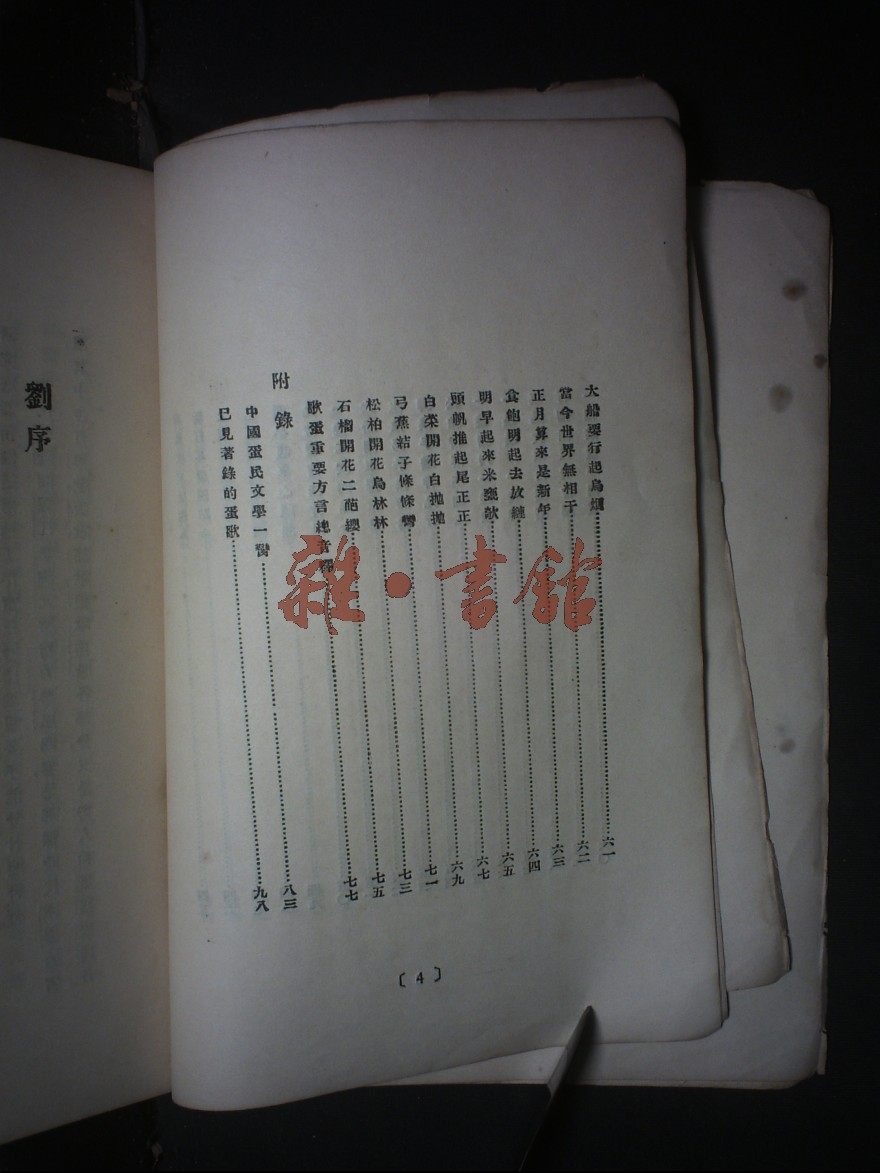 大船要行起烏爛……六一
當今世界無相干……六二
正月算來是新年……六三
食飽明起去放縺……六四
明早起來米甕欹……六五
頭帆推起尾正正……六七
白菜開花白拋拋……六九
弓蕉結子條條彎……七一
松柏開花烏林林……七三
石榴開花二葩纓……七五
歌蛋重要方言總音釋……七七
附錄
中國蛋民文學一臠……八三
已見著錄的蛋歌……九八
〔4〕
劉序
雜·書館